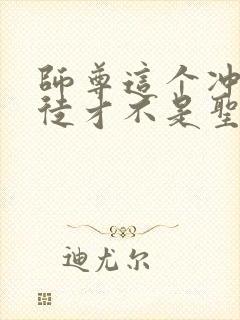 師尊這个冲
徒才不是聖
迪尤尔